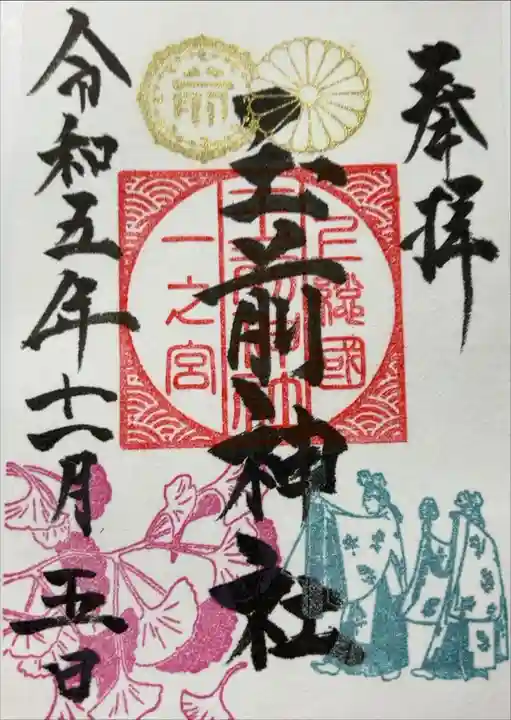 奉拝
上総國
玉前神社
一之宮
前
玉前神社
令和五年十一月五日